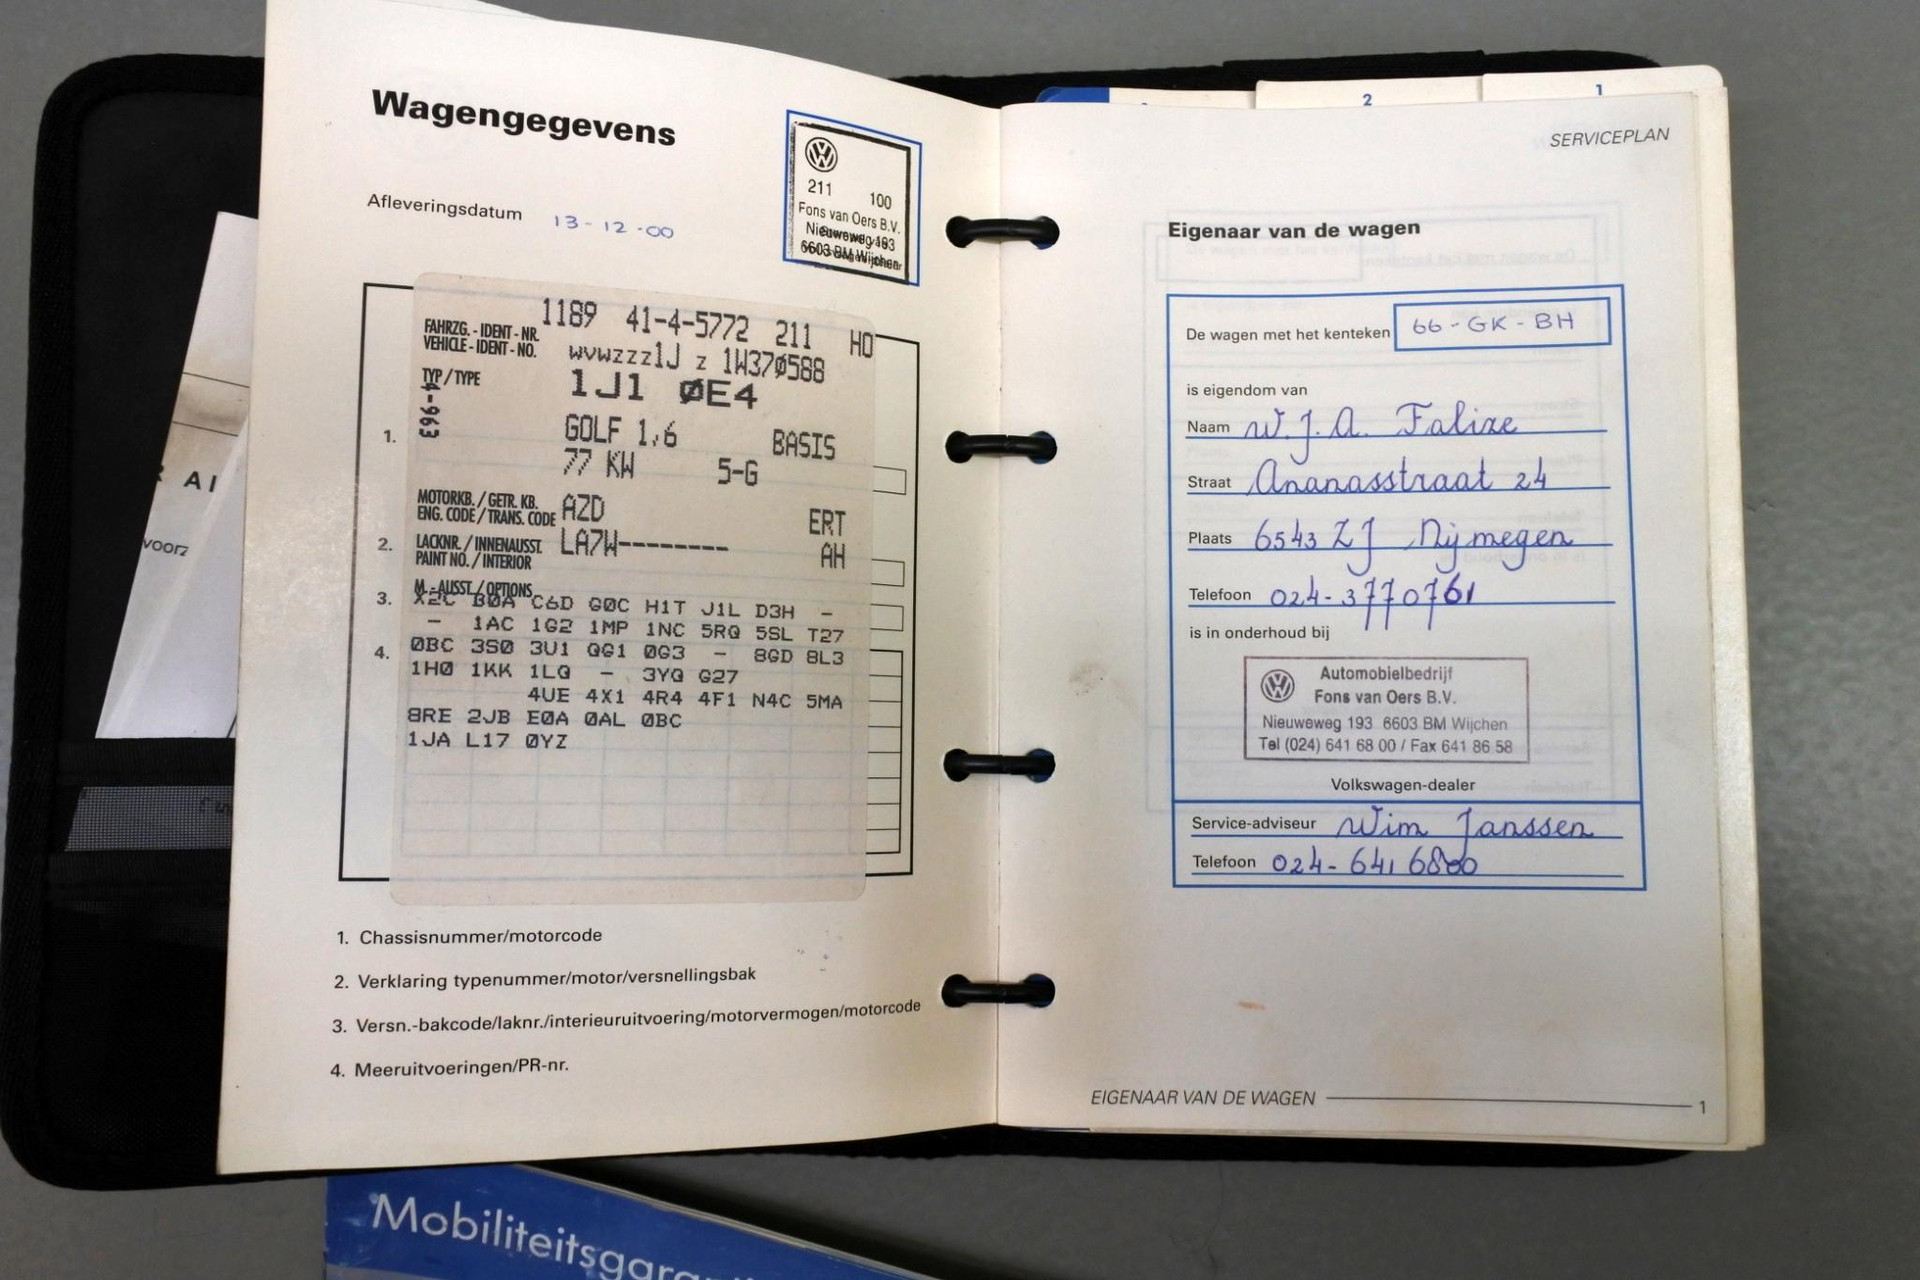 Wagengegevens
Afleveringsdatum 13-12-00
211 100
Fons van Oers B.V.
Nieuweweg 193
6603 BM Wijchen
1189 41-4-5772 211 HO
FAHRZG.-IDENT-NR.
VEHICLE-IDENT-NO. WVWZZZ1J Z 1W370588
TYP/TYPE 1J1 0E4
4-963
1. GOLF 1,6 BASIS
77 KW 5-G
MOTORKB./GETR. KB.
ENG. CODE/TRANS. CODE AZD ERT
2. LACKNR./INNENAUSST.
PAINT NO./INTERIOR LA7W-------- AH
M.-AUSST./OPTIONS
3. X2C B0A C6D G0C H1T J1L D3H -
- 1AC 1G2 1MP 1NC 5RQ 5SL T27
4. 0BC 3S0 3U1 QG1 0G3 - 8GD 8L3
1H0 1KK 1LQ - 3YQ G27
4UE 4X1 4R4 4F1 N4C 5MA
8RE 2JB E0A 0AL 0BC
1JA L17 0YZ
1. Chassisnummer/motorcode
2. Verklaring typenummer/motor/versnellingsbak
3. Versn.-bakcode/laknr./interieuruitvoering/motorvermogen/motorcode
4. Meeruitvoeringen/PR-nr.
2
1
SERVICEPLAN
Eigenaar van de wagen
De wagen met het kenteken 66-GK-BH
is eigendom van
Naam W.J.A. Falize
Straat Ananasstraat 24
Plaats 6543 ZJ Nijmegen
Telefoon 024-3770761
is in onderhoud bij
Automobielbedrijf
Fons van Oers B.V.
Nieuweweg 193 6603 BM Wijchen
Tel (024) 641 68 00 / Fax 641 86 58
Volkswagen-dealer
Service-adviseur Wim Janssen
Telefoon 024-641 6800
EIGENAAR VAN DE WAGEN 1
R AI
voorz
Mobiliteitsgaranti